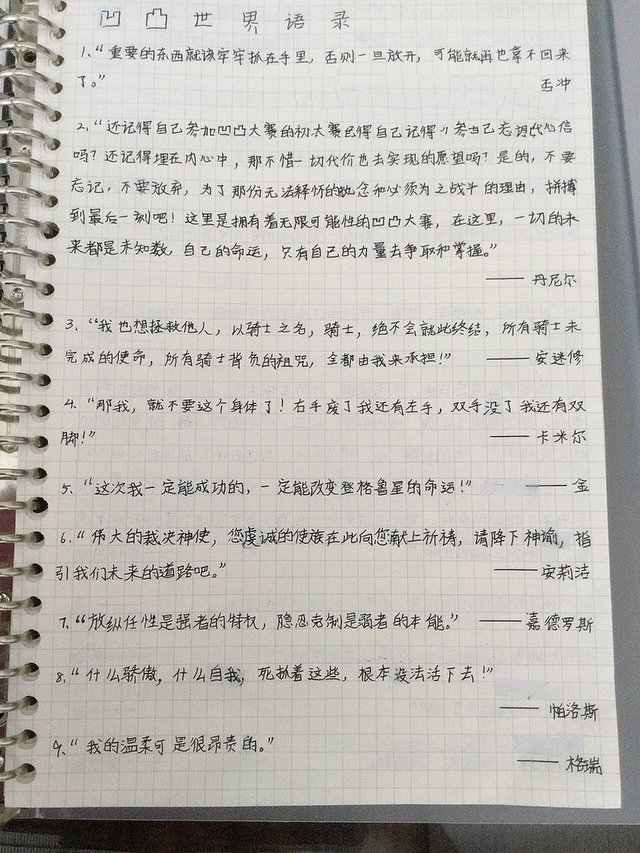 凹凸世界语录
1、“重要的东西就该牢牢抓在手里，否则一旦放开，可能就再也拿不回来
了。”
丕冲
2、“还记得自己参加凹凸大赛的初
吗？还记得埋在内心中，那不惜一切代价也去实现的愿望吗？是的，不要
忘记，不要放弃，为了那份无法释怀的执念和必须为之战斗的理由，拼搏
到最后一刻吧！这里是拥有着无限可能性的凹凸大赛，在这里，一切的未
来都是未知数，自己的命运，只有自己的力量去争取和掌握。”
——丹尼尔
3、“我也想拯救他人，以骑士之名，骑士，绝不会就此终结，所有骑士未
完成的使命，所有骑士背负的诅咒，全都由我来承担！”——安迷修
4、“那我，就不要这个身体了！右手废了我还有左手，双手没了我还有双
脚！”——卡米尔
5、“这次我一定能成功的，一定能改变登格鲁星的命运！”——金
6、“伟大的裁决神使，您虔诚的使族在此向您献上祈祷，请降下神谕，指
引我们未来的道路吧。”——安莉洁
7、“放纵任性是强者的特权，隐忍克制是弱者的本能。”——嘉德罗斯
8、“什么骄傲，什么自我，死抓着这些，根本没法活下去！”
——帕洛斯
9、“我的温柔可是很昂贵的。”
——格瑞